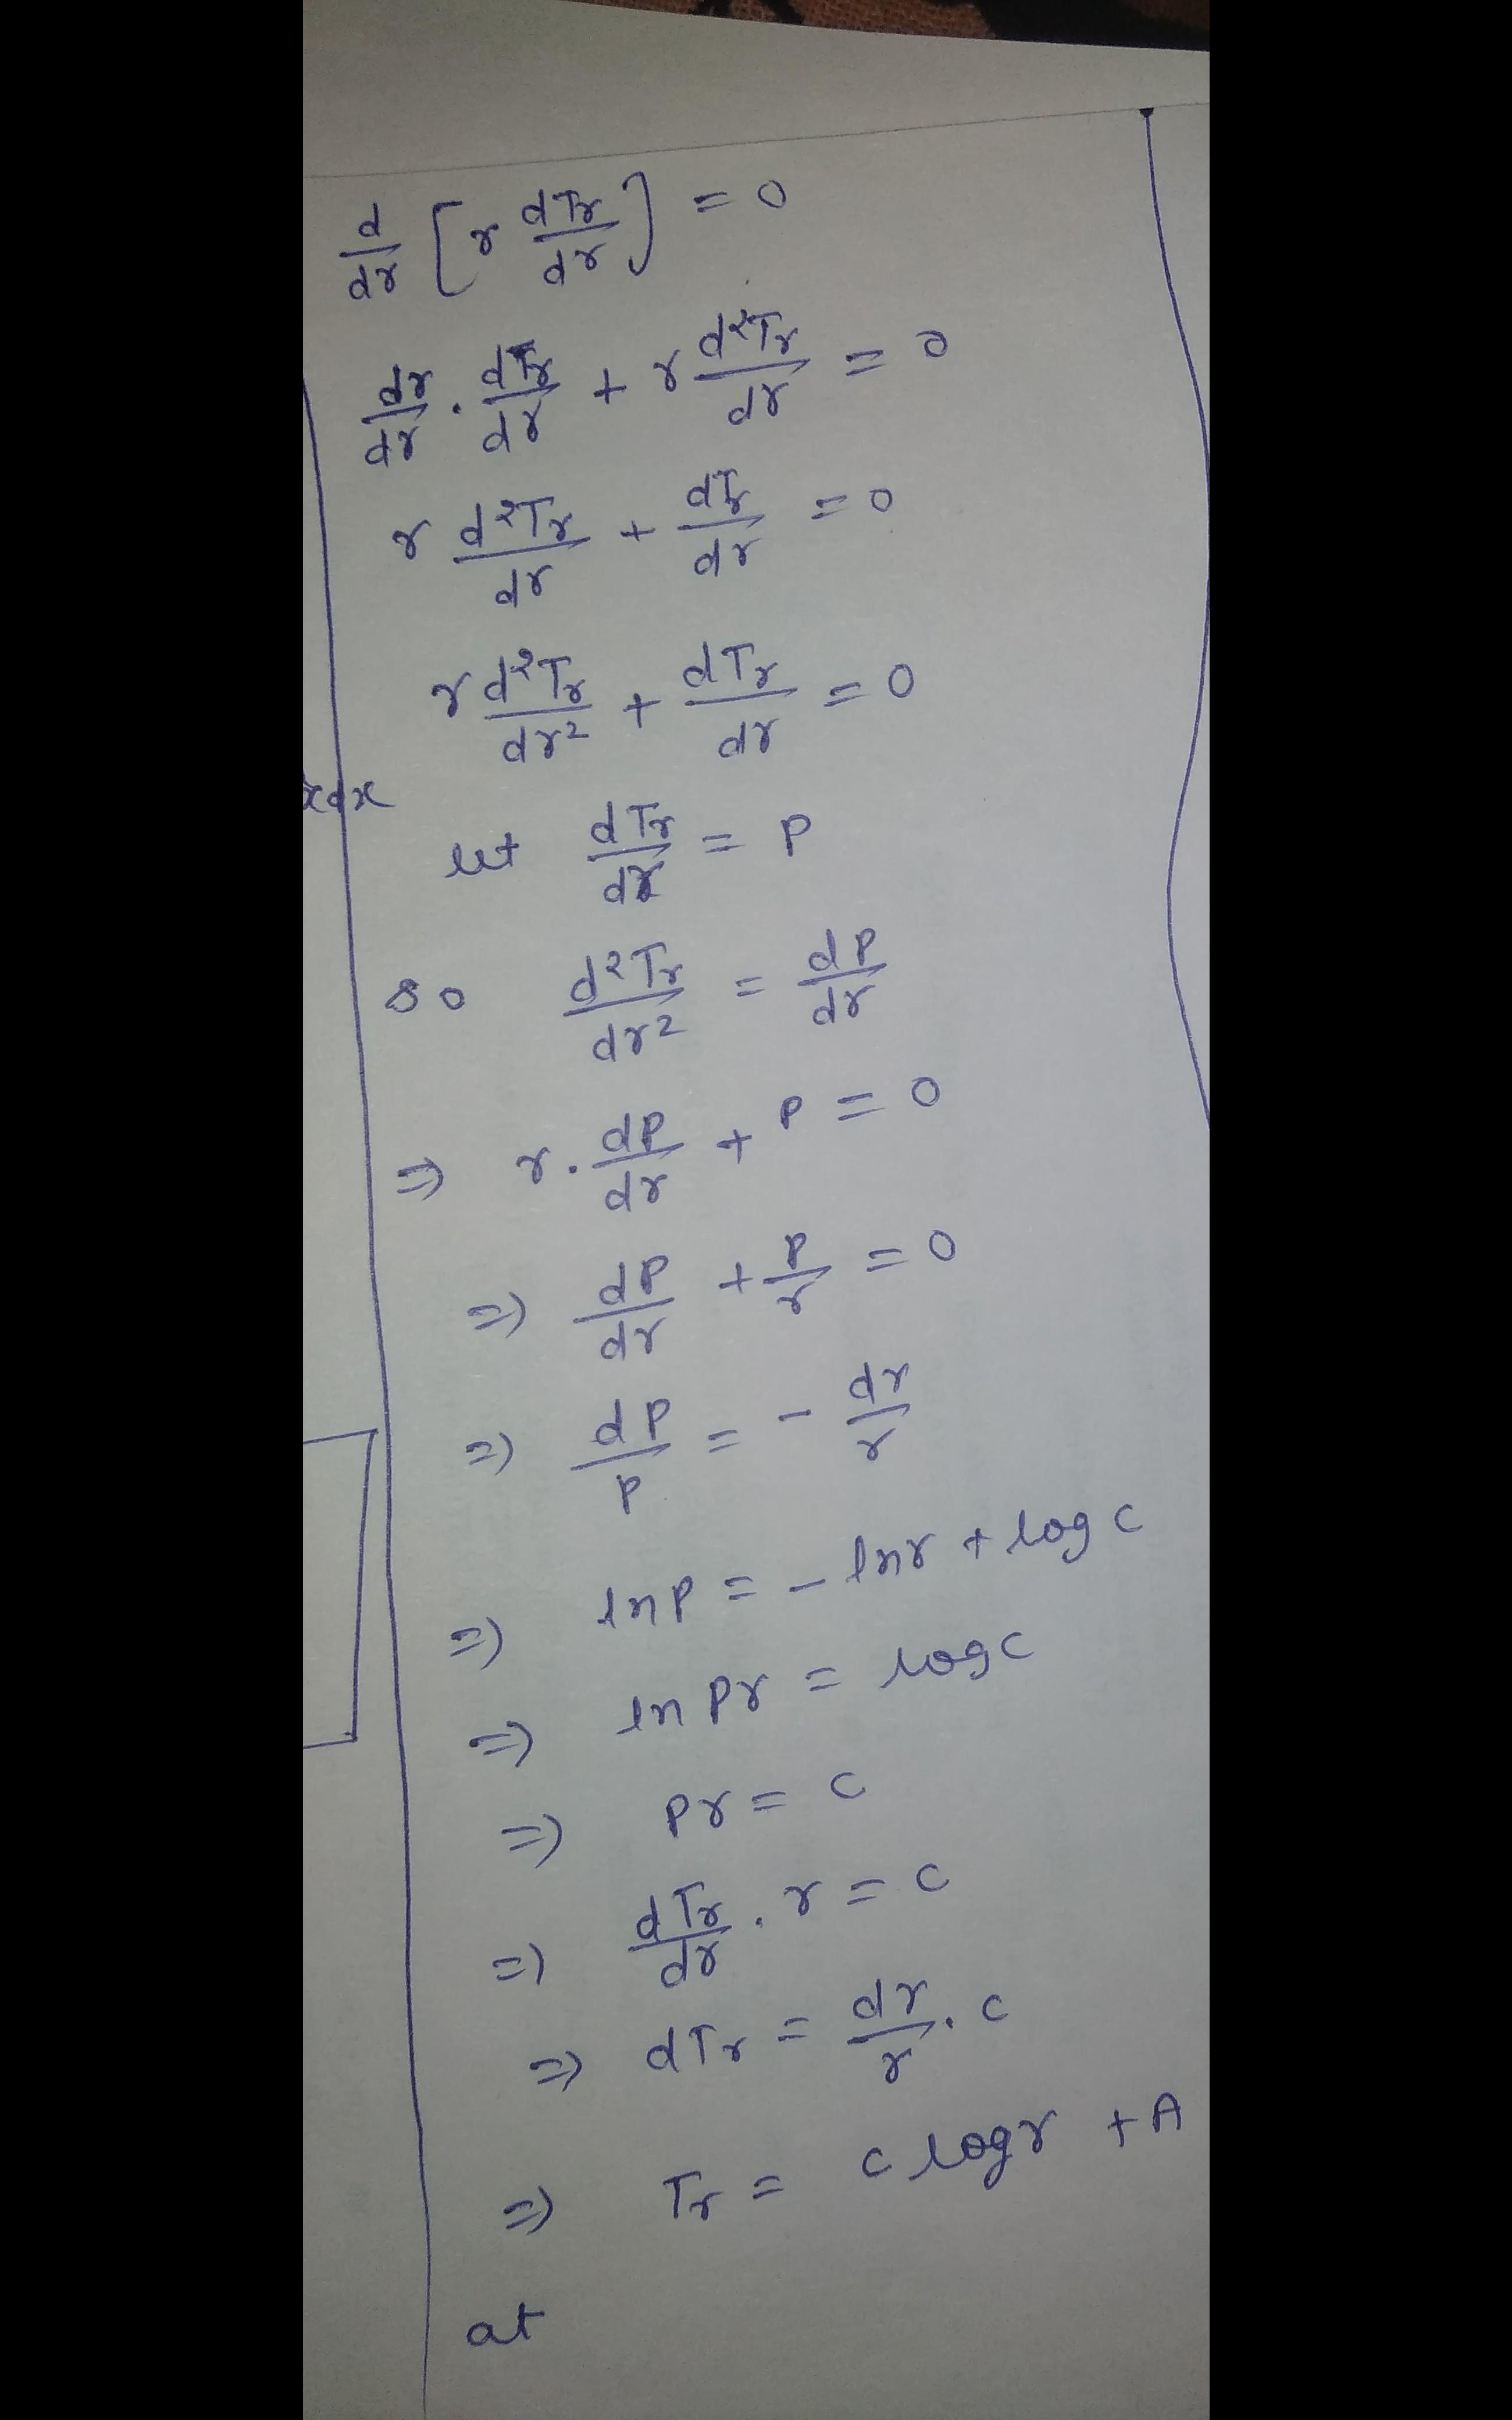 d/dr [r dTr/dr] = 0
dr/dr . dTr/dr + r d²Tr/dr = 0
r d²Tr/dr + dTr/dr = 0
r d²Tr/dr² + dTr/dr = 0
xdx
let dTr/dr = P
so d²Tr/dr² = dP/dr
⇒ r . dP/dr + P = 0
⇒ dP/dr + P/r = 0
⇒ dP/P = - dr/r
⇒ ln P = - ln r + log c
⇒ ln Pr = log c
⇒ Pr = c
⇒ dTr/dr . r = c
⇒ dTr = dr/r . c
⇒ Tr = c log r + A
at